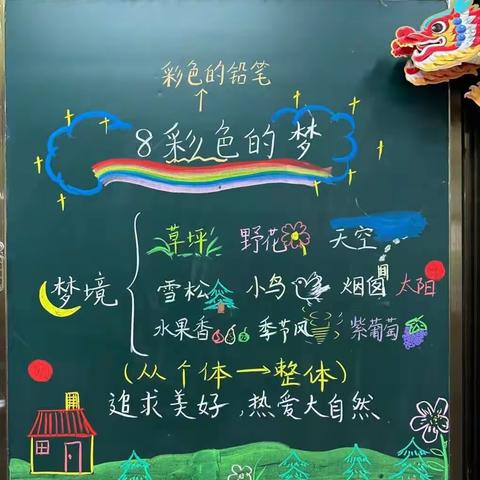 彩色的铅笔
8 彩色的梦
草坪 野花 天空
梦境
雪松 小鸟 烟囱 太阳
水果香 季节风 紫葡萄
(从个体→整体)
追求美好，热爱大自然